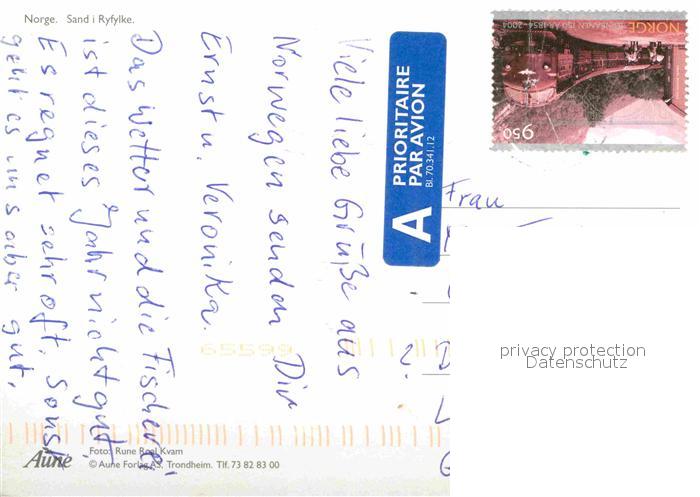 Norge. Sand i Ryfylke.
Viele liebe Grüße aus
Norwegen senden Dir
Ernst u. Veronika.
Das Wetter und die Fischerei
ist dieses Jahr nicht gut.
Es regnet sehr oft. Sonst
geht es uns aber gut.
A PRIORITAIRE
PAR AVION
Bl. 70.341.12
NORGE
1854-2004
950
Frau
65599
privacy protection
Datenschutz
Aune
Foto: Rune Roal Kvam
© Aune Forlag AS, Trondheim. Tlf. 73 82 83 00